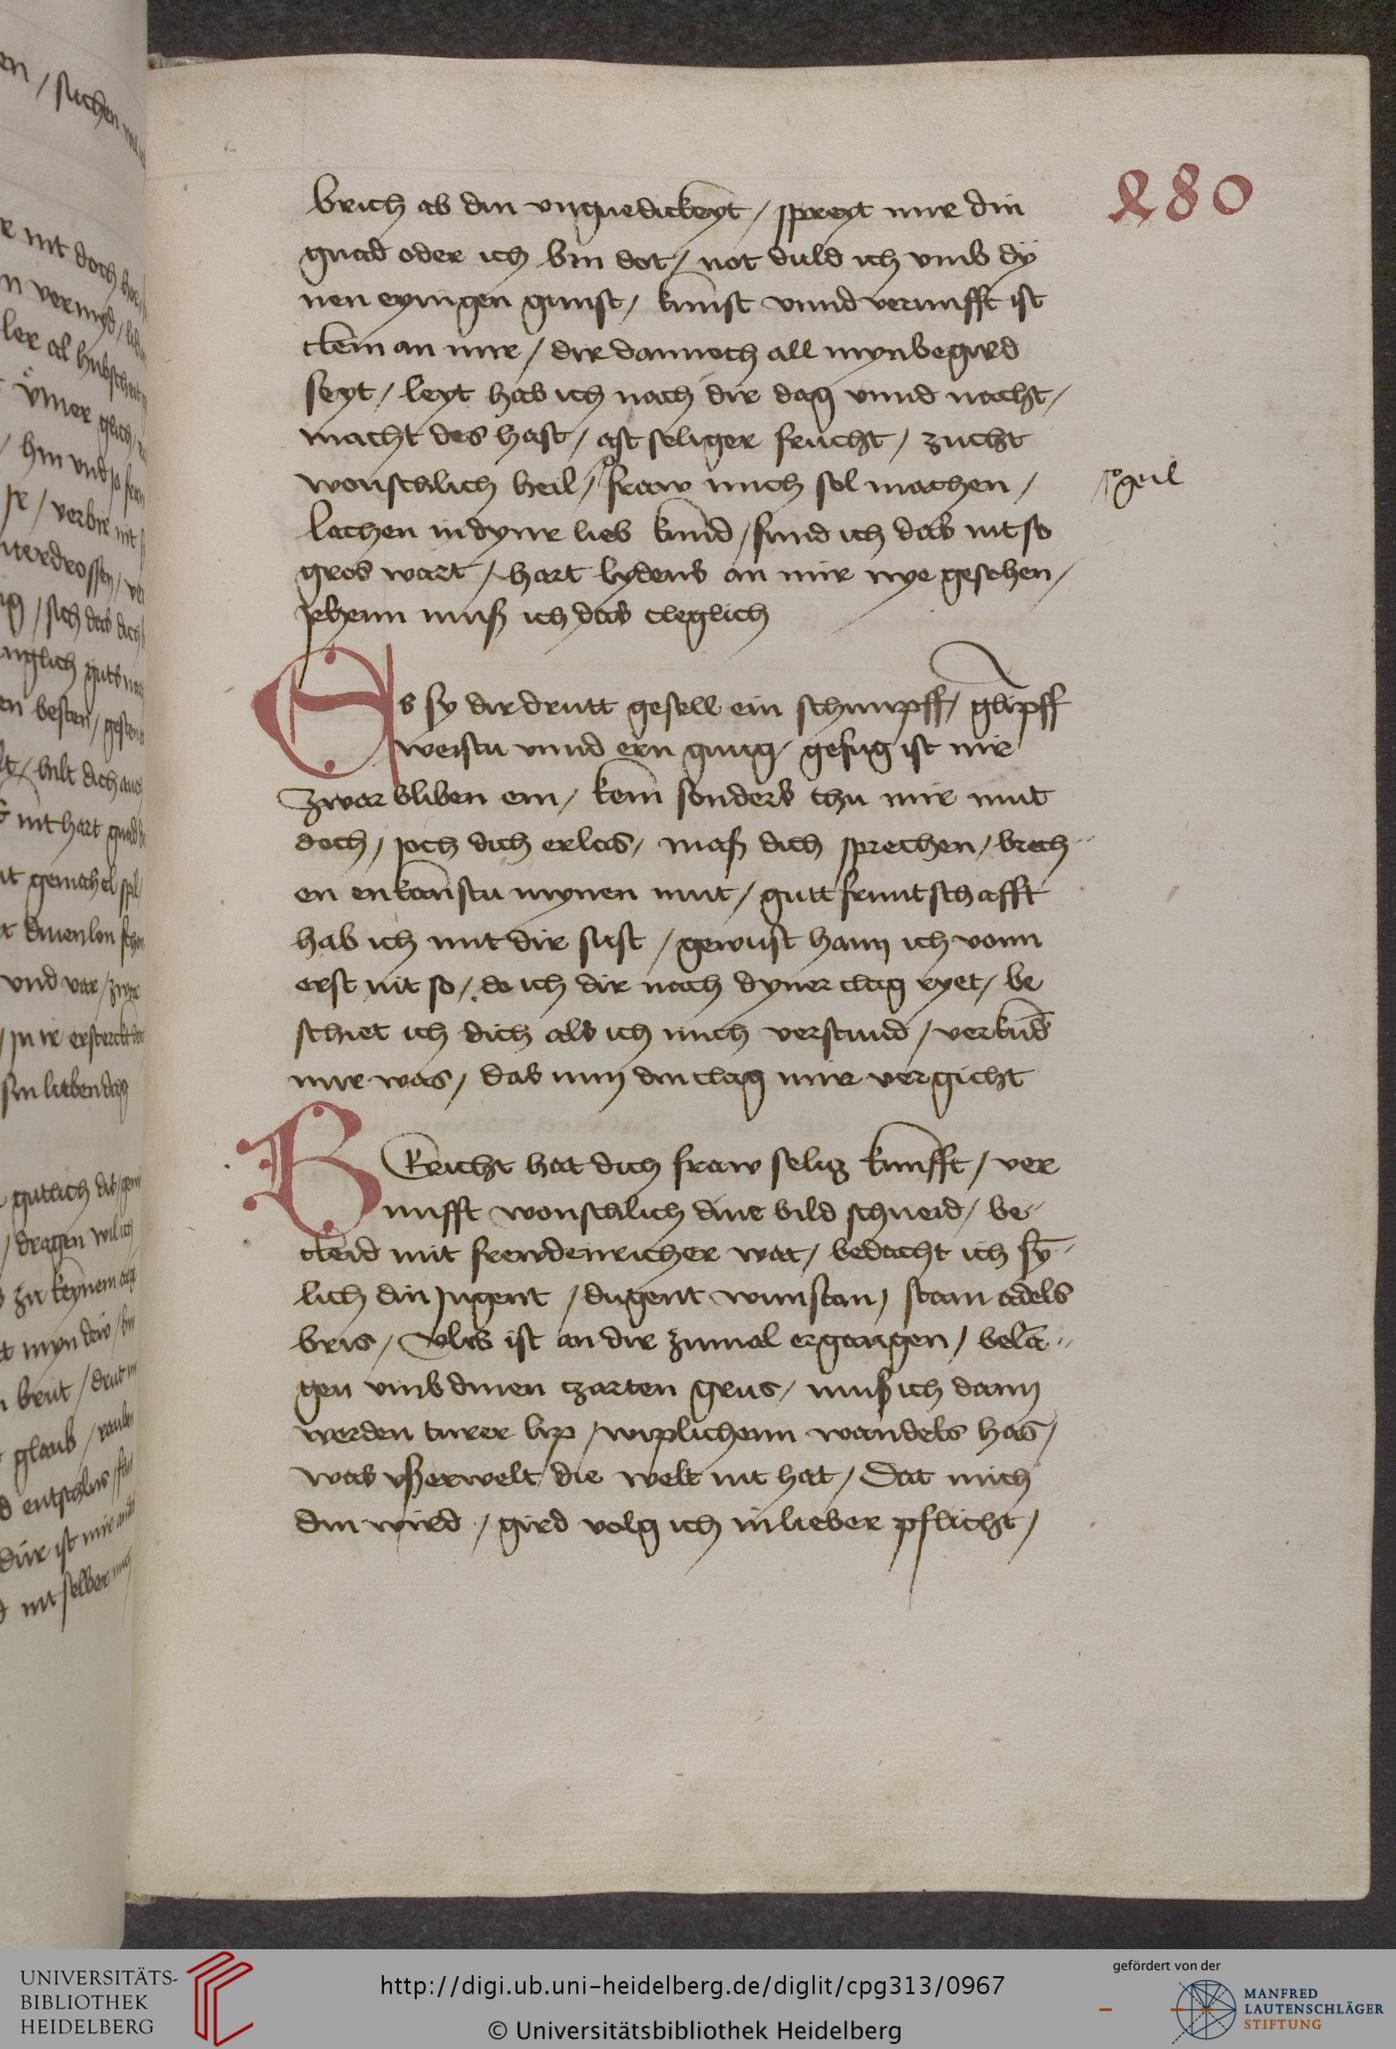 480
brich ab din vngnedickeyt / spreyt mir din
gnad oder ich bin dot / not duld ich vmb dy
nen eynigen gunst / kunst vnnd vernufft ist
clein an mir / dir dannoch all myn begird
seyt / leyt hab ich nach dir dag vnnd nacht /
macht des hast / ast seliger frucht / zucht
wonschlich heil / fraw mich sol machen /
geil
lachen in dyner lieb kund / fund ich das nit so
gros wart / hart lydens an mir nye gesehen /
Jehenn muß ich das cleglich
Es sy dir drutt gesell ein schimpff / glimpff
weistu vnnd ern gnug / gefug ist mir
zwar bliben ein / kein sonders thu mir mut
doch / joch dich erlas / mas dich sprechen / brech
en enkanstu mynen mut / gutt fruntschafft
hab ich mit dir sust / gewust hann ich vonn
erst nit so / do ich dir nach dyner clag ryet / be
schiet ich dich als ich mich verstund / verkund
mir was / das nun din clag mir vergicht
Bericht hat dich fraw selig kunfft / ver
nufft wonschlich dine bild schneid / be
cleid mit frewdenricher wat / bedacht ich sy
lich din Jugent / dugent wunstan / stam adels
bris / vlis ist an dir zumal ergangen / belan
gen vmb dinen zarten grus / mus ich dann
werden turer lip / wiplichenn wandels has /
was vßerwelt die welt nit hat / Dat mich
din wird / gird volg ich in lieber pflicht /
UNIVERSITÄTS-
BIBLIOTHEK
HEIDELBERG
http://digi.ub.uni-heidelberg.de/diglit/cpg313/0967
© Universitätsbibliothek Heidelberg
gefördert von der
MANFRED
LAUTENSCHLÄGER
STIFTUNG